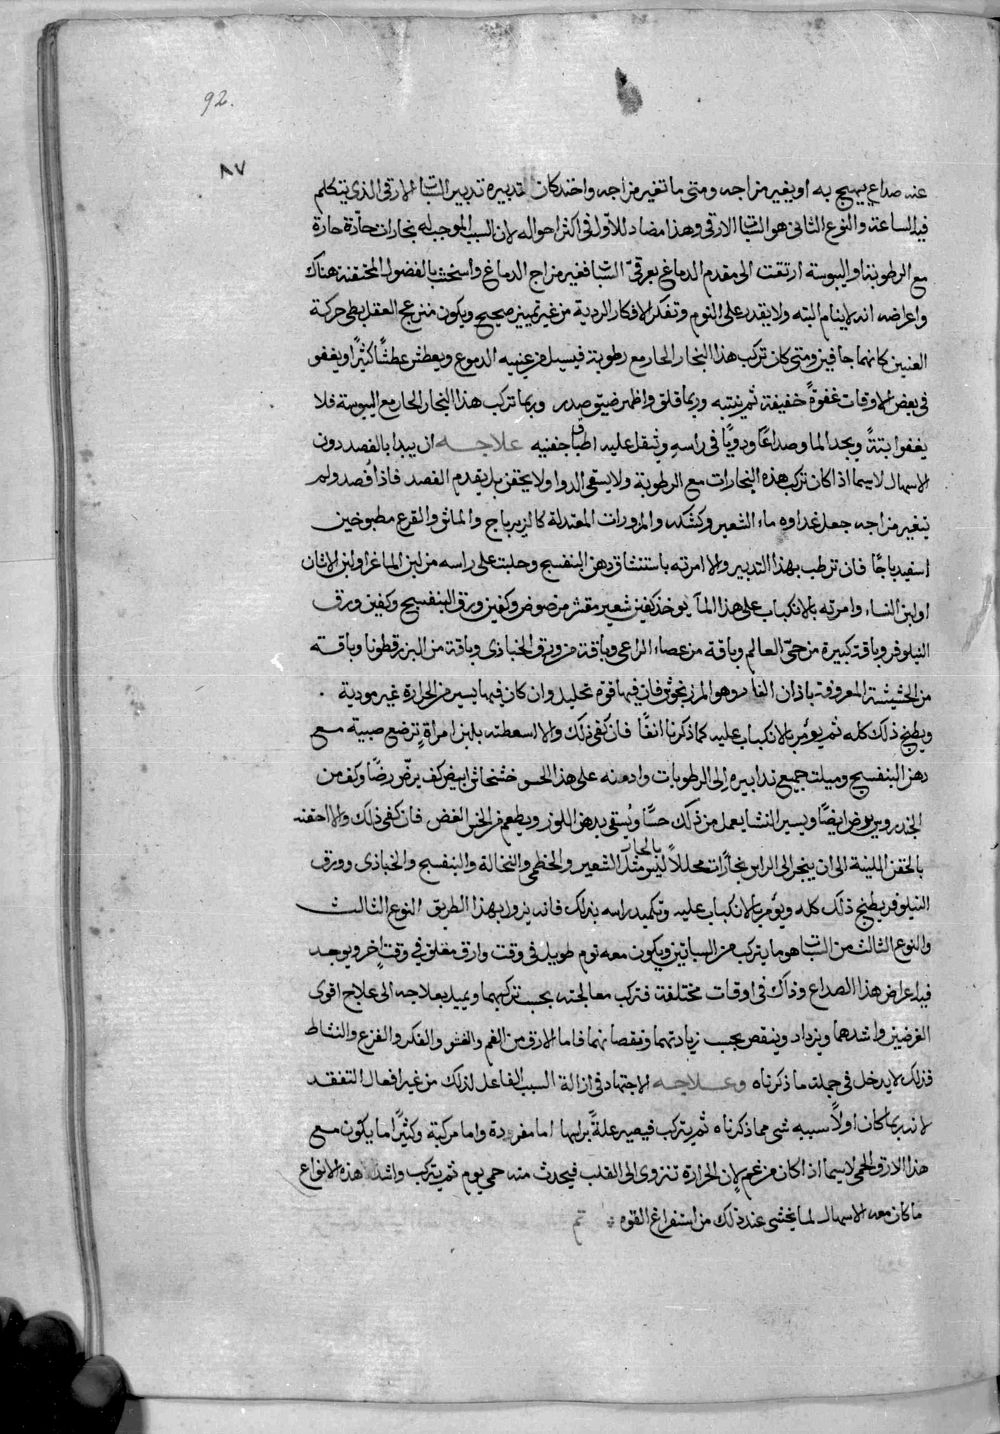 92.
٨٧
عنه صداع يهيج به او يغير مزاجه ومتى ما تغير مزاجه واحتد كان تدبيره تدبير السبات الارقى الذى يتكلم
فيه الساعة والنوع الثانى هو السبات الارقى وهذا مضاد للاول فى اكثر احواله لان السبب الموجب له بخارات حادّة حارة
مع الرطوبة او اليبوسة ارتقت الى مقدم الدماغ بعرقىّ السبات فغير مزاج الدماغ واسخنت بالفضول المختقنة هناك
واعراضه انه لا ينام البته ولا يقدر على النوم وتفكر الافكار الردية من غير تمييز صحيح ويكون منزعج العقل بطى حركة
العنين كانهما جافين ومتى كان تركب هذا البخار الحار مع رطوبة فيسيل من عينيه الدموع ويعطش عطشًا كثيرًا ويغفو
فى بعض الاوقات غفوةً خفيفة ثم ينتبه وربما قلق واظهر ضيق صدر وربما تركب هذا البخار الحار مع اليبوسة فلا
يغفوا بتةً ويجد الما وصداعًا ودويًا فى راسه وثقل عليه اطباق جفنيه علاجه ان يبدا بالفصد دون
الاسهال لاسيما اذا كان تركب هذه البخارات مع الرطوبة ولا يسقى الدوا ولا يحقن بل يقدم الفصد فاذا فُصد ولم
يتغير مزاجه جعل غذاوه ماء الشعير وكشكه والمزورات المعتدلة كالزيرباج والماش والقرع مطبوخين
اسفيدباجًا فان ترطب بهذا التدبير والا امرته باستنشاق دهن البنفسج وحلبت على راسه من لبن الماعز او لبن الاتان
او لبن النساء وامرته بالانكباب على هذا المآ يوخذ كفين شعير مقشر مرضوض وكفين ورق البنفسج وكفين ورق
النيلوفر وباقة كبيرة من حىّ العالم وباقة من عصاء الراعى وباقة من ورق الخبازى وباقة من البزر قطونا وباقة
من الحشيشة المعروفة باذان الفار وهو المرزنجوش فان فيها قوة تحليل وان كان فيها يسير من الحرارة غير موذية .
ويطبخ ذلك كله ثم يؤمر بالانكباب عليه كما ذكرنا انفًا فان كفى ذلك والا اسعطته بلبن امراةٍ ترضع صبية مع
دهن البنفسج وميلت جميع تدابيره الى الرطوبات وادمنه على هذا الحسو خشخاش ابيض كف يرض رضًا وكف من
الجندروس يرض ايضًا ويسير النشا يعمل من ذلك حسًا ويُسقى بدهن اللوز ويطعم من الخس الغض فان كفى ذلك والا احقنه
بالحقن اللينة الى ان ينجر الى الراس بخارات محللاً ليس بالحار مثل الشعير والخطمى والنخالة والبنفسج والخبازى وورق
النيلوفر يطبخ ذلك كله ويؤمر بالانكباب عليه وتكميد راسه بذلك فانه يزول بهذا الطريق النوع الثالث
والنوع الثالث من السبات هو ما يتركب من السباتين ويكون معه نوم طويل فى وقت وارق مقلق فى وقت اخر ويوجد
فيه اعراض هذا الصداع وذاك فى اوقات مختلفة فتركب معالجته بحسب تركبهما ويميل بعلاجه الى علاج اقوى
العرضين واشدهما ويزداد وينقص بحسب زيادتهما ونقصانهما فاما الارق من الغم والفكر والفزع والنشاط
فذلك لا يدخل فى جملة ما ذكرناه وعلاجه الاجتهاد فى ازالة السبب الفاعل لذلك من غير افعال التفقد
لانه ربما كان اولاً سببه شى مما ذكرناه ثم يتركب فيصير علةً براسها اما مفردة واما مركبة وكثيرًا ما يكون مع
هذا الارق الحمى لاسيما اذا كان من غم لان الحرارة تنزوى الى القلب فيحدث منه حمى يوم ثم يتركب واشد هذه الانواع
ما كان معه الاسهال لما يخشى عند ذلك من استفراغ القوه تم